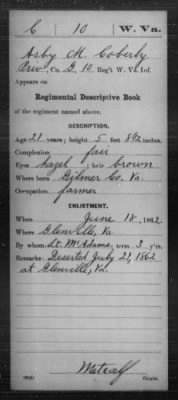 C 10 W. Va.
Asby M. Coberly
Priv, Co. D, 10 Reg't W. Va. Inf.
Appears on
Regimental Descriptive Book
of the regiment named above.
DESCRIPTION.
Age 21 years; height 5 feet 8½ inches.
Complexion fair
Eyes hazel; hair brown
Where born Gilmer Co. Va.
Occupation farmer
ENLISTMENT.
When June 18, 1862.
Where Glenville, Va.
By whom Lt. McAdams; term 3 y'rs.
Remarks: Deserted July 21, 1862
at Glenville, Va.
Metcalf
Copyist.